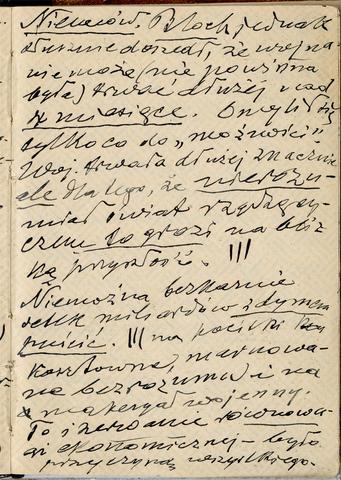 Niemców. Bloch jednak
słusznie doszedł, że wojna
nie może (nie powinna
była) trwać dłużej nad
miesiące. Omylił się
tylko co do „możności”
Woj. trwała dłużej znacznie
ale dlatego, że nierozu-
miał świat rządzący
czem to grozi na bliz
ką przyszłość. |||
Niemożna bezkarnie
setek miliardów z dymem
puścić. ||| na pociski
kosztowne, marnowa-
ne bezrozumnie i na
materyał wojenny.
To zerwanie równowa-
gi ekonomicznej – było
przyczyną wszystkiego.